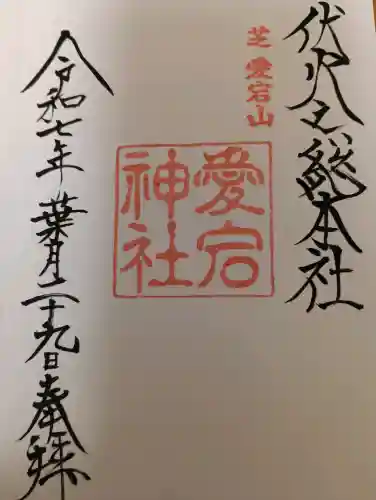 伏火之総本社
芝 愛宕山
愛宕
神社
令和七年 葉月二十九日 奉拝